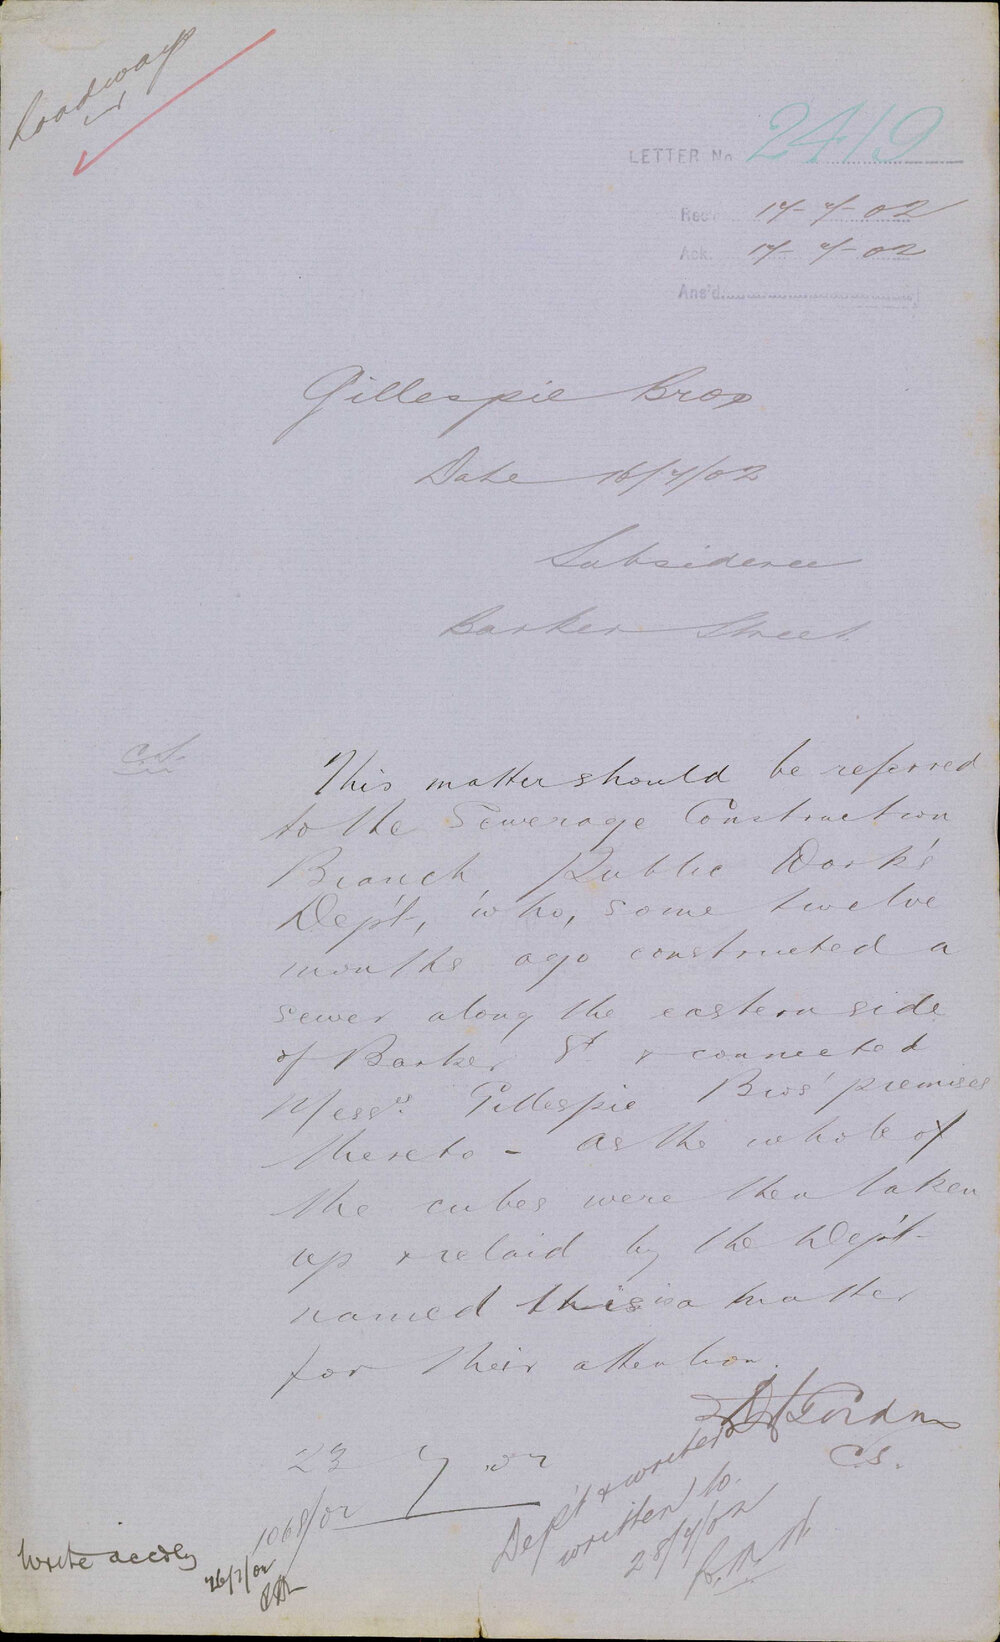 Roadways
LETTER No 2419
Rec'd 17-7-02
Ack. 17-7-02
Ans'd
Gillespie Bros
Date 16/7/02
Subsidence
Barker Street
C.S.
This matter should be referred
to the Sewerage Construction
Branch Public Work's
Dep't, who, some twelve
months ago constructed a
sewer along the eastern side
of Barker St & connected
Messrs. Gillespie Bros' premises
thereto - As the whole of
the cubes were then taken
up & relaid by the Dep't
named this is a matter
for their attention.
Gordon
C.S.
23 7 02
Dep't & writer
written to.
28/7/02
1068/02
Write accdly
26/7/02